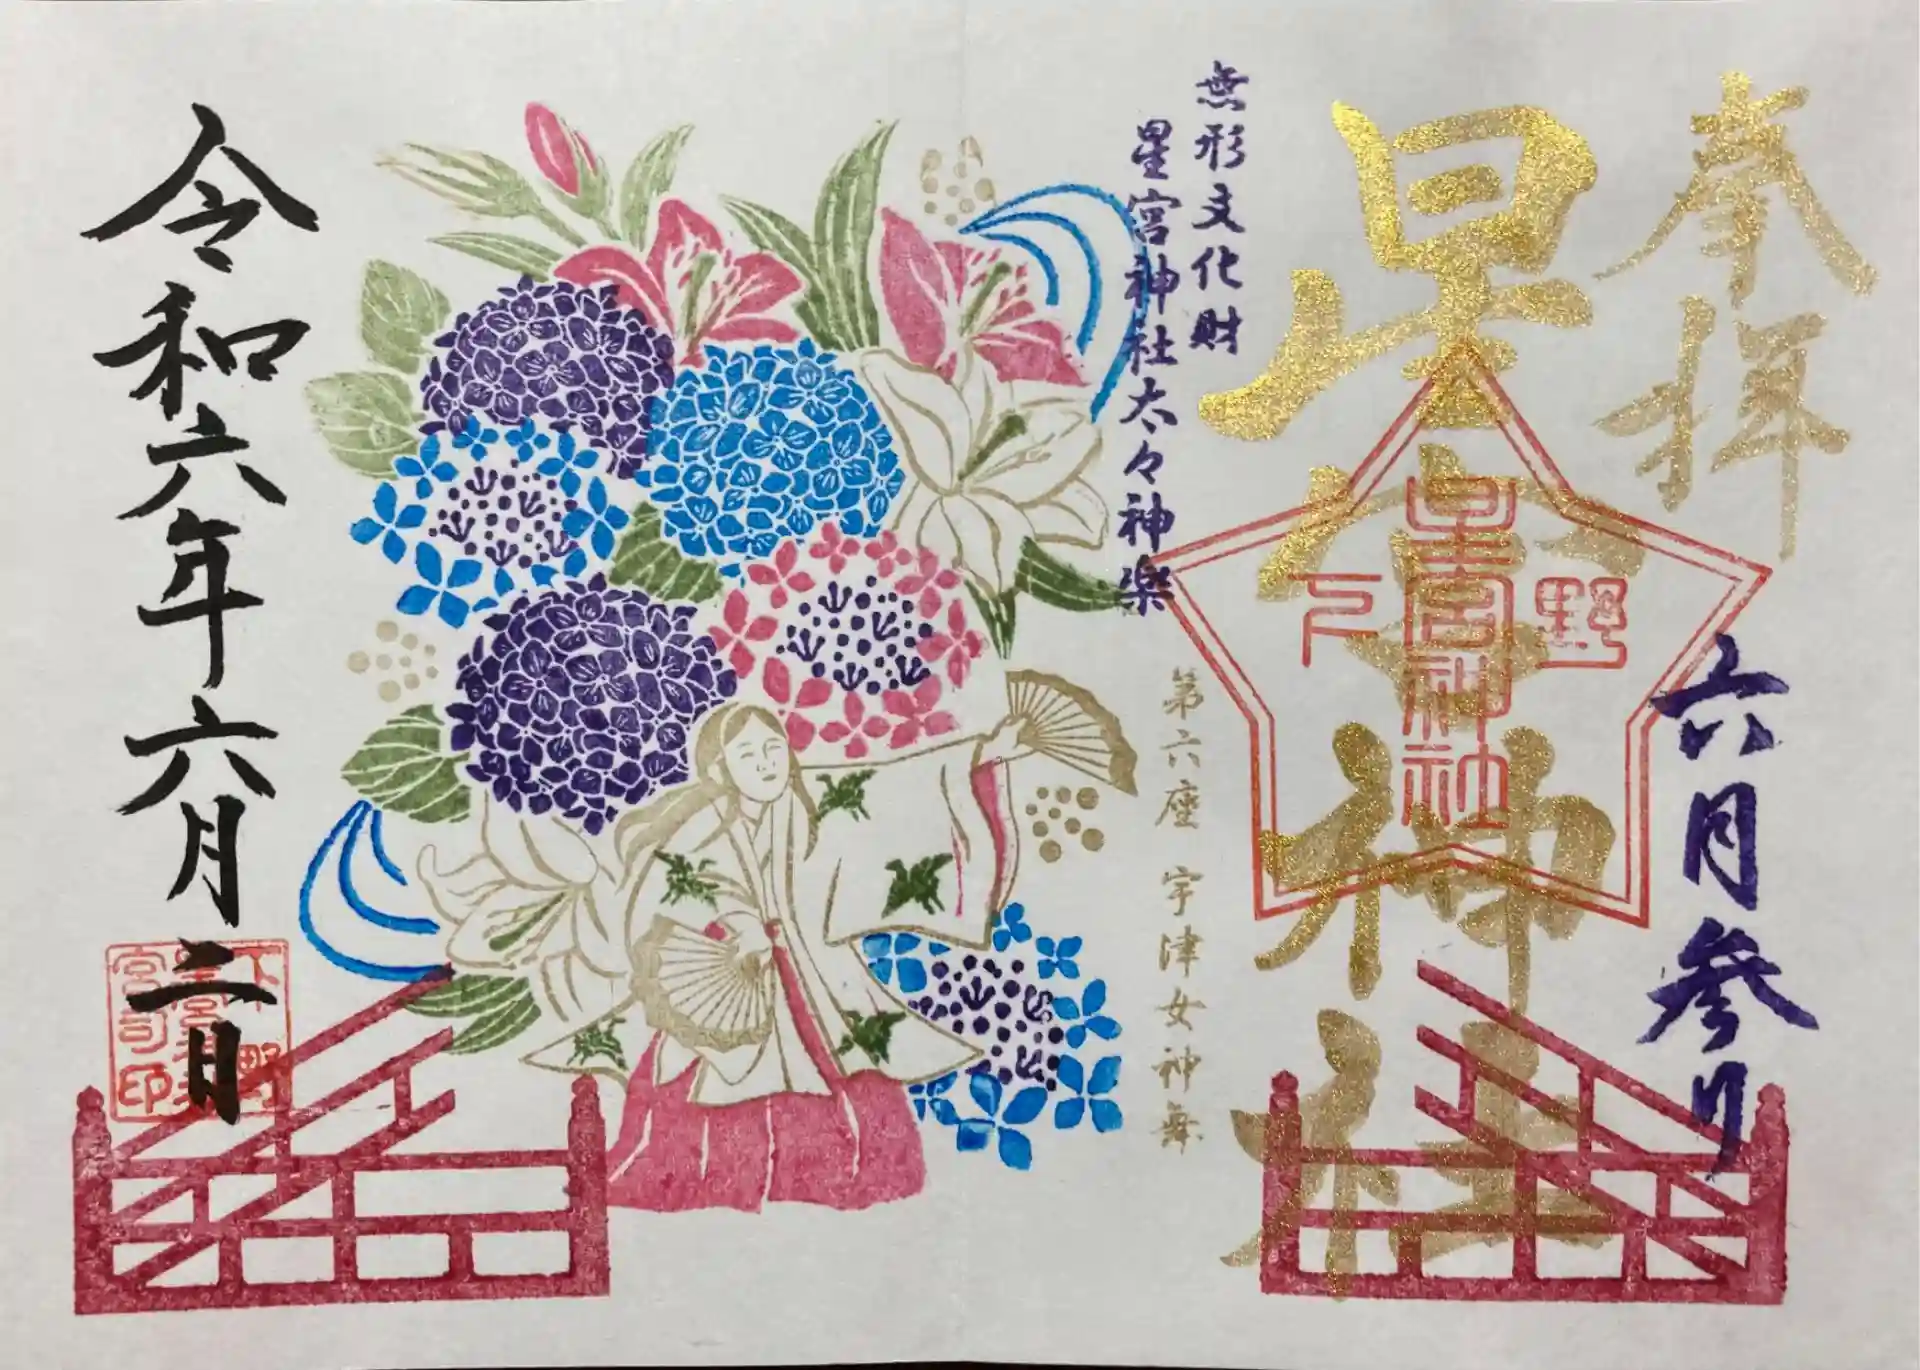 奉拝
星宮神社
下野
星宮神社
六月参り
無形文化財
星宮神社太々神楽
第六座 宇津女神舞
令和六年六月二日
下野
星宮神社
宮司印